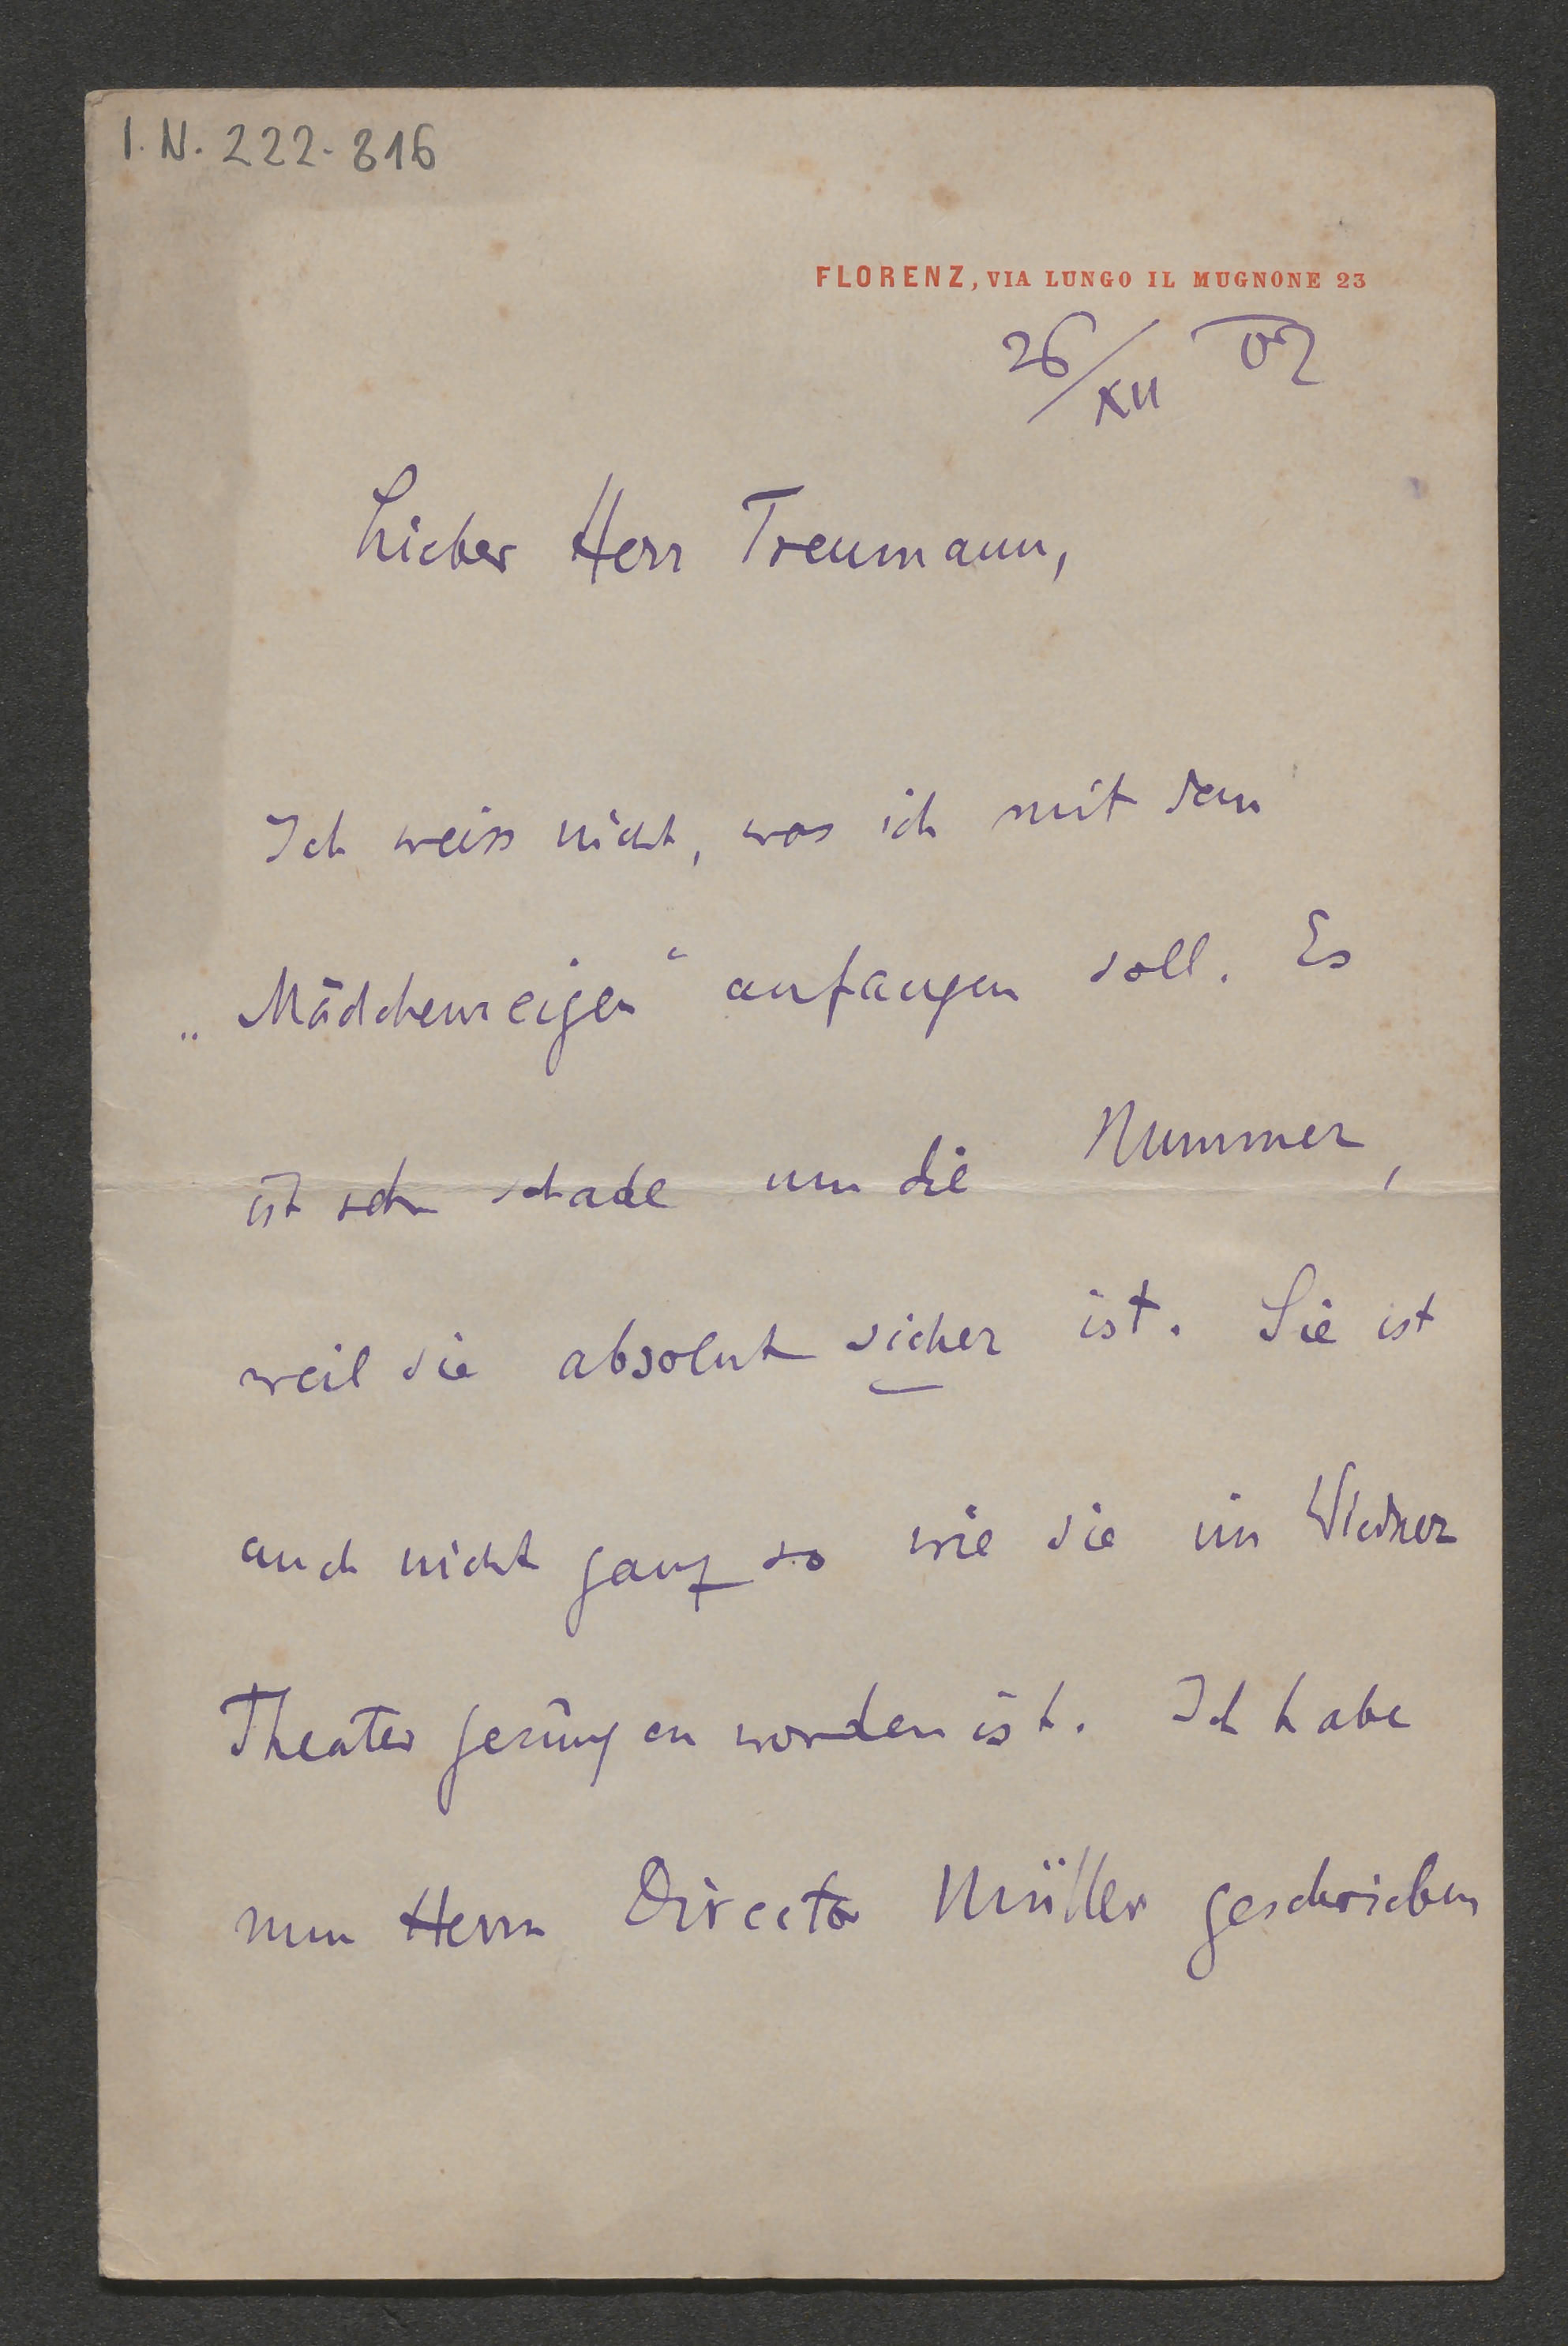 I.N. 222.816
FLORENZ, VIA LUNGO IL MUGNONE 23
26/XII 07
Lieber Herr Treumann,
Ich weiss nicht, was ich mit dem
„Mädchenreigen“ anfangen soll. Es
ist sehr schade um die Nummer,
weil sie absolut sicher ist. Sie ist
auch nicht ganz so wie sie im Wiedner
Theater gesungen worden ist. Ich habe
nun Herrn Director Müller geschrieben